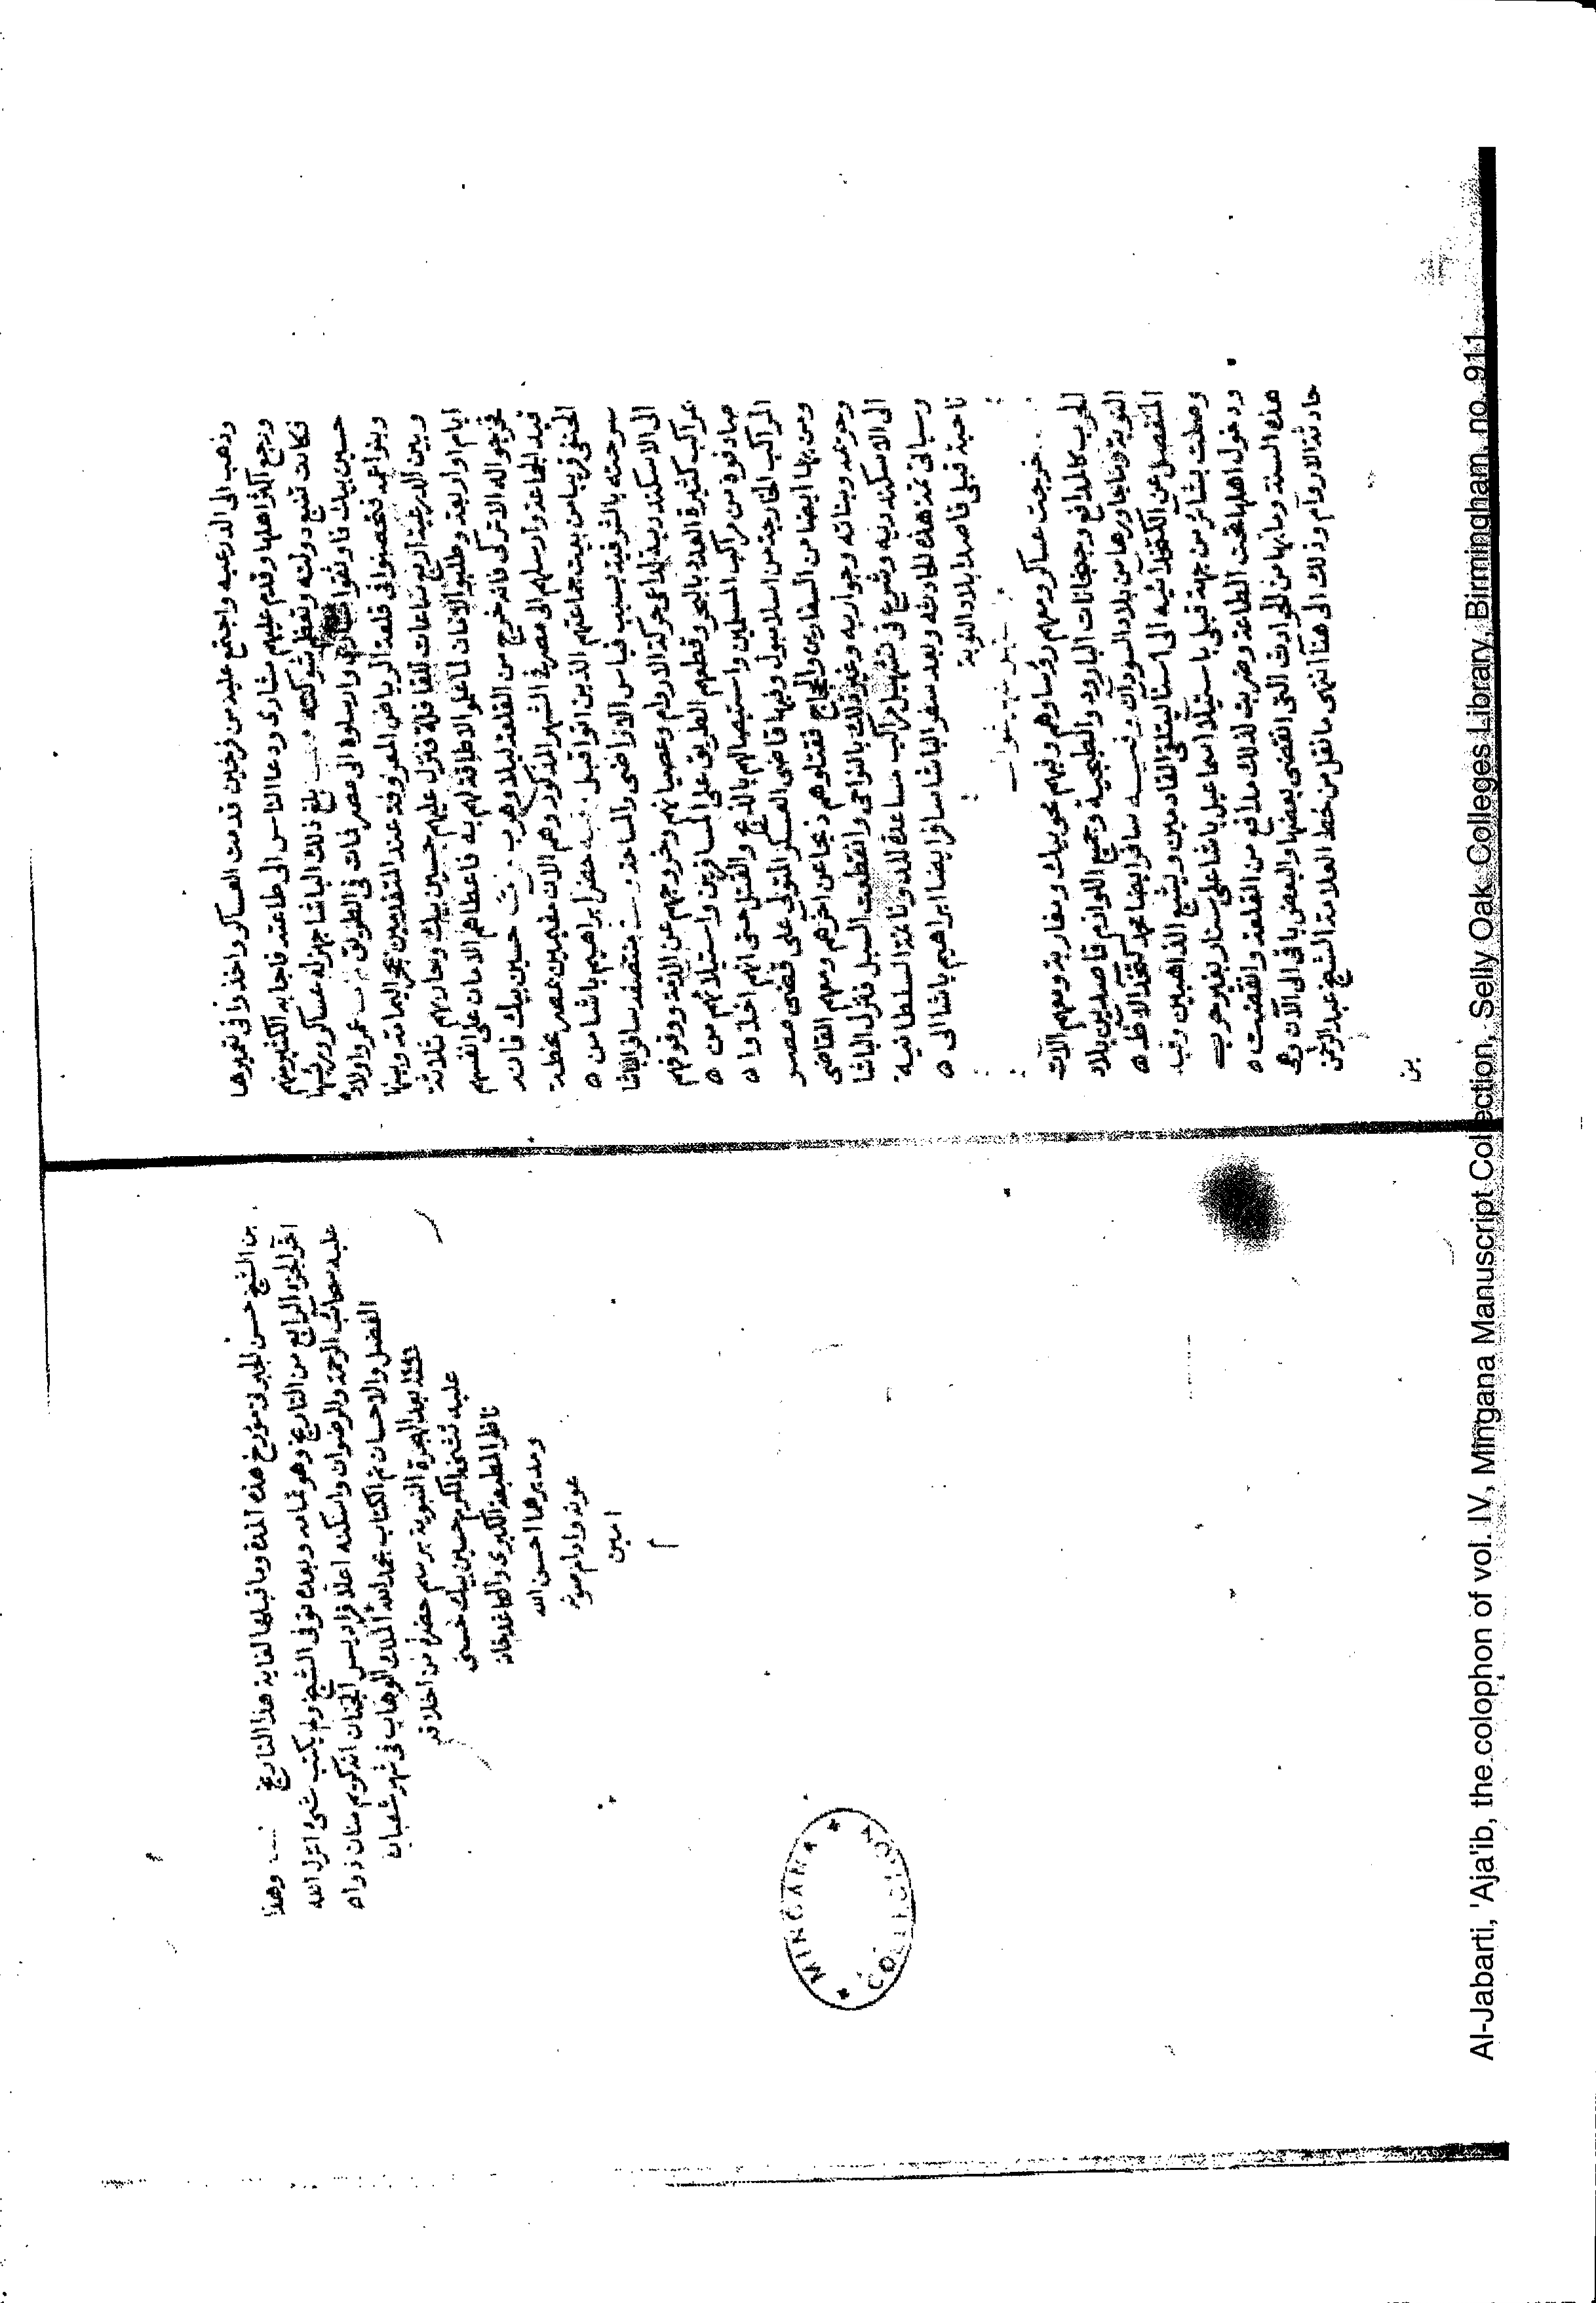 وذهب الى الدرعيه واجتمع عليه من فرحين قدمت العساكر واخذوا فى تعميرها
ورجع اكثر اهلها وقدم عليهم مشارى ودعا الناس الى طاعته فاجابه الكثير منهم
فكادت تتسع دولته وتعظم شوكته بلغ ذلك الباشا جهز له عساكر ورئيسها
حسين بيك فاوثقوا مشارى وارسلوه الى مصر فمات فى الطريق عمر واولاده
وبنو اعمه فتحصنوا فى قلعة الرياض المعروفه عند المتقدمين بحجر اليمامة وبينها
وبين الدرعية اربع ساعات للقافلة فنزل عليهم حسين بيك وحاربهم ثلاثة
ايام او اربعة وطلبوا الامان لما علموا الاطاقة لهم به فاعطاهم الامان على انفسهم
فخرجوا له الا تركى فانه خرج من القلعة ليلا وهرب حسين بيك فانه
قيد الجماعة وارسلهم الى مصر فى الشهر المذكور وهم الان مقيمين بمصر بخطة
الحنفى قريبا من بيت جماعتهم الذين اتوا قبل حضر ابراهيم باشا من
سرحته بالشرقية بسبب قياس الاراضى والمساحة بمنتصفه سافر الباشا
الى الاسكندرية لداعى حركة الاروام وعصيانهم وخروجهم عن الذمة ووقوفهم
بمراكب كثيرة العدد بالبحر وقطعهم الطريق على المسافرين واستيلائهم من
صادفوه من مراكب المسلمين واستيصالهم بالذبح والقتل حتى انهم اخذوا
المراكب الخارجة من اسلامبول وفيها قاضى العسكر المتولى على قضى مصر
ومن بها ايضا من السفارين والحجاج فقتلوهم ذبحا عن اخرهم ومعهم القاضى
وحريمه وبناته وجواريه وغير ذلك بالنواحى وانقطعت السبل فنزل الباشا
الى الاسكندريه وشرع فى تشهيل مراكب مساعدة للدوناتمه السلطانية
وسياتى تتمة هذه الحادثه وبعد سفر الباشا سافر ايضا ابراهيم باشا الى
ناحية قبلى قاصدا بلاد النوبة
خرجت عساكر ومعهم رؤساوهم وفيهم محو بيك ومغاربة ومعهم الات
الحرب كالمدافع وجبخانات البارود والطبجية وجميع اللوازم قاصدين بلاد
النوبة وما جاورها من بلاد السودان سافر ايضا محمد كتخدا لاظ
المنفصل عن الكتخدائيه الى اسنا ليتلقى القادمين ويشيع الذاهبين وفيه
وصلت بشائر من جهة قبلى باستيلا اسماعيل باشا على سنار بغير حرب
ودخول اهلها تحت الطاعة وضربت لذلك مدافع من القلعة وانقضت
هذه السنة وما بها من الحوادث التى انقضى بعضها والبعض باقى الى الان وهى
حادثة الاروام وذلك الى هنا انتهى ما نقل من خط العلامة الشيخ عبد الرحمن
بن
بن الشيخ حسن الجبرتى مؤرخ هذه المدة وما قبلها لغاية هذا التاريخ وهذا
اخر الجزء الرابع من التاريخ وهو تمامه وبعده توفى الشيخ ولم يكتب شئ انزل الله
عليه سحائب الرحمة والرضوان واسكنه اعلا فراديس الجنان انه كريم منان ذو
الفضل والاحسان تم الكتاب بحمد الله الملك الوهاب فى شهر شعبان
بعد الهجرة النبوية برسم حضرة من اخلاقه
عليه تثنى المكرم حسين بيك حسنى
ناظر المطبعة الكبرى والكاغدخانه
ومديرهما احسن الله
عونه وادام صونه
امين
م
MINGANA
COLLECTION
Al-Jabarti, 'Aja'ib, the colophon of vol. IV, Mingana Manuscript Collection, Selly Oak Colleges Library, Birminghan, no. 911